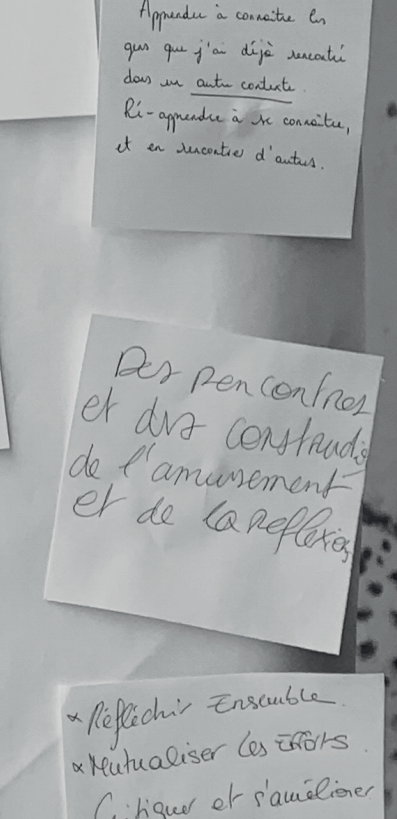 Apprendre à connaître les
gens que j'ai déjà rencontré
dans un autre contexte.
Ré-apprendre à se connaître,
et en rencontrer d'autres.
Des rencontres
et des
de l'amusement
et de la reflexion
* Réfléchir Ensemble.
* Mutualiser les Efforts.
Critiquer et s'améliorer